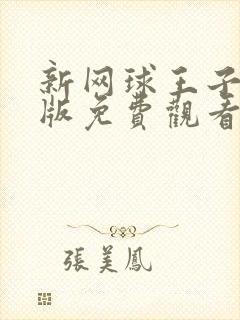 新网球王子
版免費觀看
張美鳳